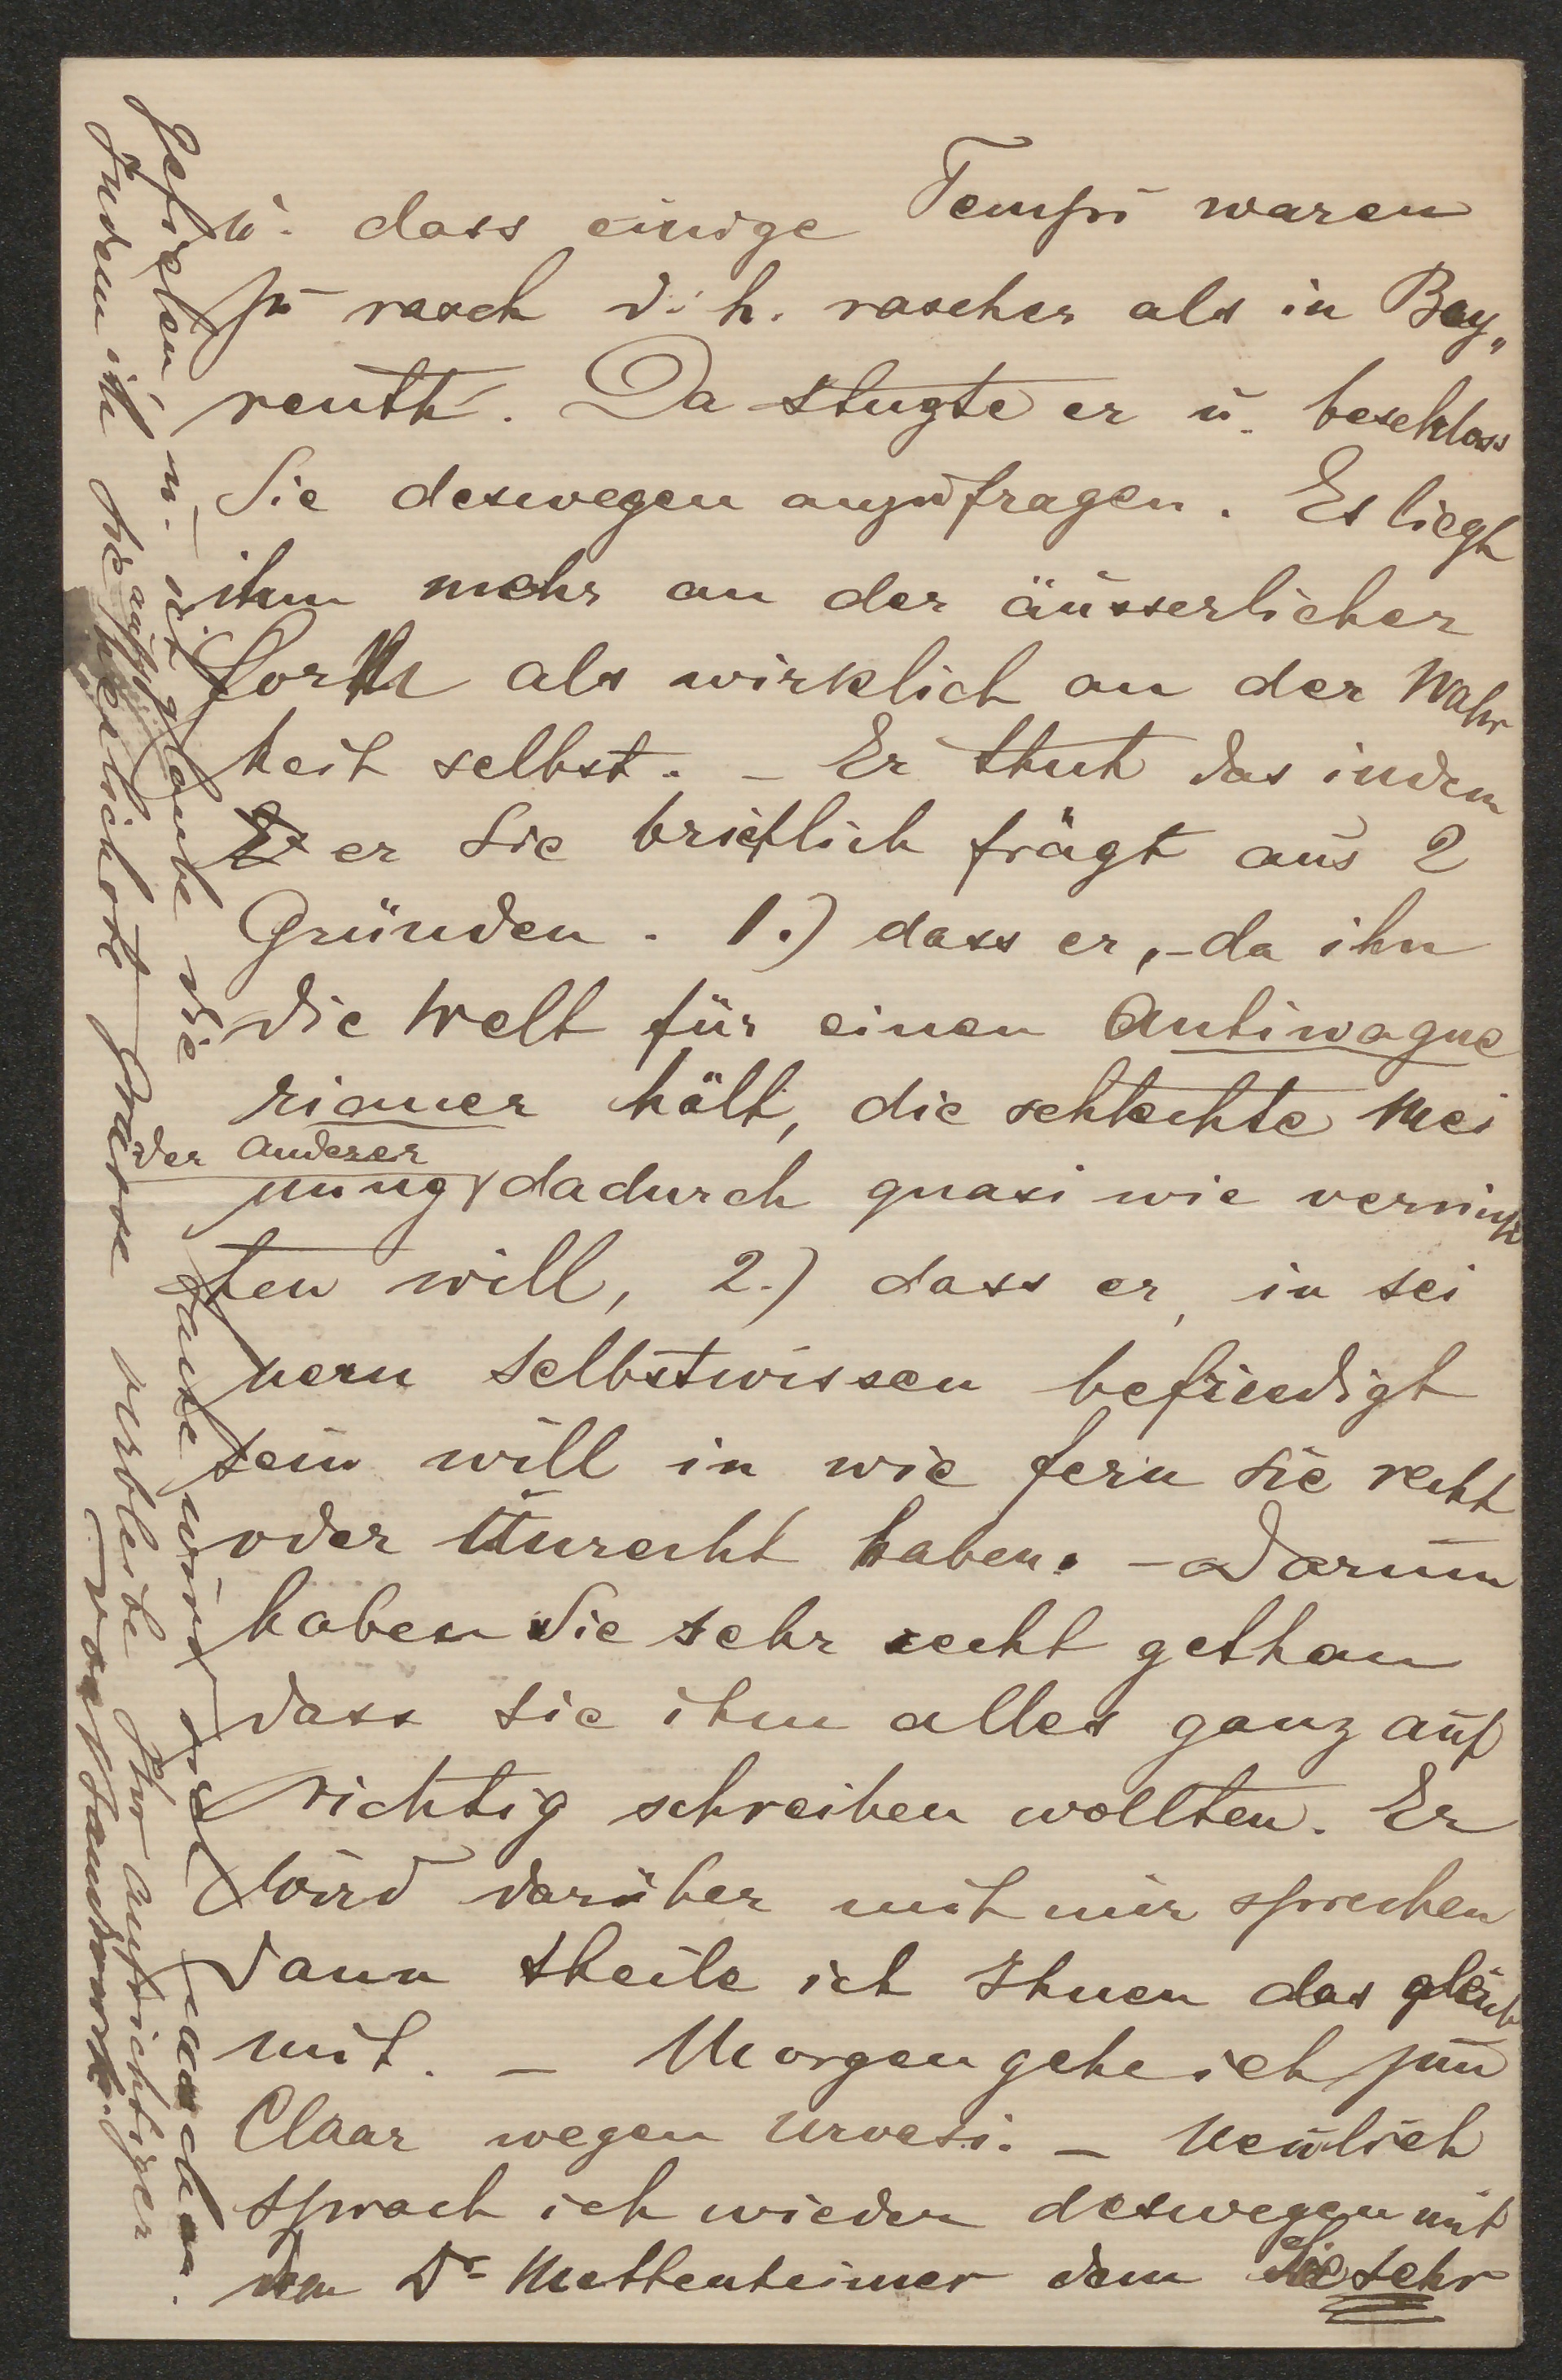 u. dass einige Tempi waren
zu rasch d. h. rascher als in Bay„
reuth. Da stuzte er u. beschloss
Sie deswegen anzufragen. Es liegt
ihm mehr an der äusserlicher
Form als wirklich an der Wahr
heit selbst. – Er thut das indem
er Sie brieflich frägt aus 2
Gründen. 1.) dass er, – da ihn
die Welt für einen Antiwagne
rianer hält, die schlechte Mei
der anderer
nung dadurch quasi wie vernich
ten will, 2.) dass er, in sei
nem Selbstwissen befriedigt
sein will in wie fern Sie recht
oder Unrecht haben. – Darum
haben Sie sehr recht gethan
dass Sie ihm alles ganz auf
richtig schreiben wollten. Er
wird darüber mit mir sprechen
dann theile ich Ihnen das gleich
mit. – Morgen gehe ich zum
Claar wegen Urvasi. – Neulich
sprach ich wieder deswegen mit
dem Dr Mettenheimer dem Sie sehr
gefielen u. ich glaube die Sache wird sich machen.
Indem ich Sie auf's herzlichste grüsse verbleibe Ihr aufrichtiger